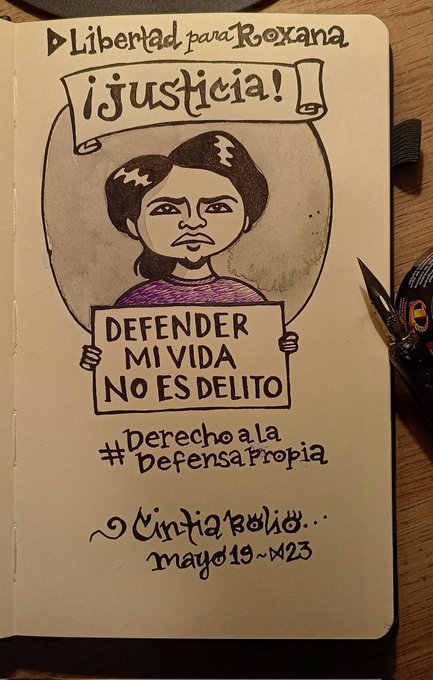 Libertad para Roxana
¡justicia!
DEFENDER
MI VIDA
NO ES DELITO
#Derecho a la
Defensa Propia
Cintia Bolio...
mayo 19~23